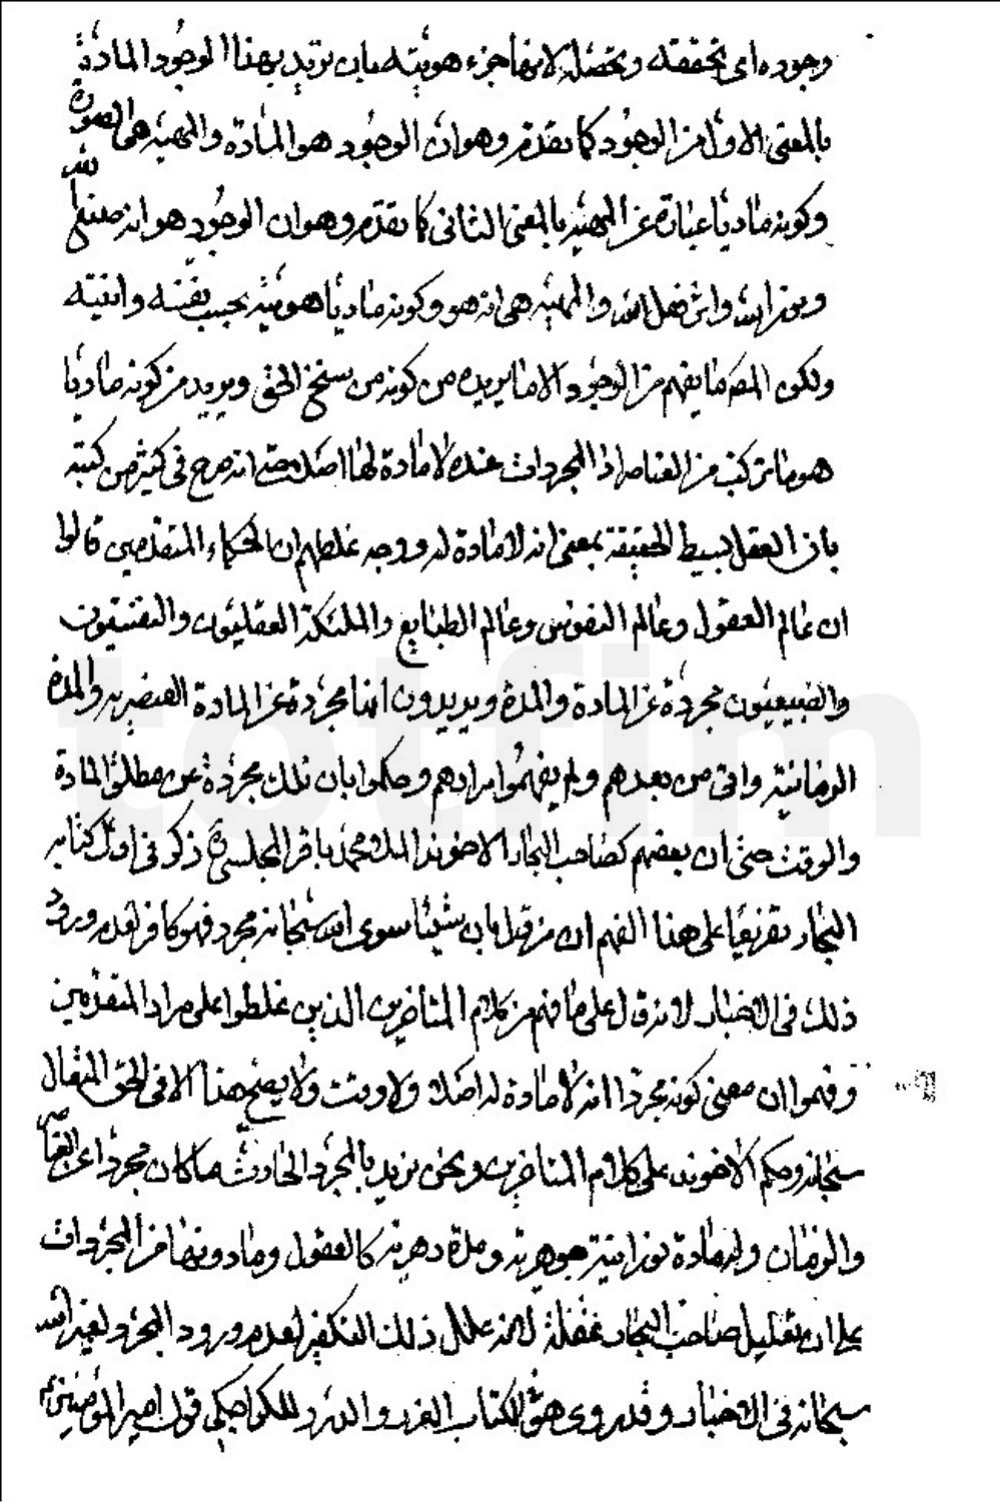 وجوده اى تحققه وتحصله لانها جزء هويته بان تريد بهذا الوجود المادة
بالمعنى الاول من الوجود كما تقدم وهو ان الوجود هو المادة والمهية هى الصورة
وكونه ماديا عبارة عن المهية بالمعنى الثانى كما تقدم وهو ان الوجود هو انه صنع الله
ونور الله واثر فعل الله والمهية هى انه هو وكونه ماديا هويته بحسب نفسه وانيته
ولكن المصّ ما يفهم من الوجود الا ما يريده من كونه من سنخ الحق ويريد من كونه ماديا
هو ما تركب من العناصر اذ المجردات عنده لا مادة لها اصلا حتى انه صرح فى كثير من كتبه
بان العقل بسيط الحقيقة بمعنى انه لا مادة له ووجه غلطهم ان الحكماء المتقدمين قالوا
ان عالم العقول وعالم النفوس وعالم الطبايع والملئكة العقليون والنفسيون
والطبيعيون مجردة عن المادة والمدة ويريدون انها مجردة عن المادة العنصرية والمدة
الزمانية واتى من بعدهم ولم يفهموا مرادهم وحكموا بان تلك مجردة عن مطلق المادة
والوقت حتى ان بعضهم كصاحب البحار الاخوند الملا محمد باقر المجلسى ذكر فى اول كتابه
البحار تفريعا على هذا الفهم ان من قال بان شيئا سوى الله سبحانه مجرد فهو كافر لعدم ورود
ذلك فى الاخبار لانه قال على ما فهم من كلام المتأخرين الذين غلطوا على مراد المتقدمين
وفهموا ان معنى كونه مجردا انه لا مادة له اصلا ولا وقت ولا يصح هذا الا فى الحق المتعال
سبحانه وحكم الاخوند على كلام المتاخرين ونحن نريد بالمجرد الحادث ما كان مجردا عن العناصر
والزمان وله مادة نورانية جوهرية ومدة دهرية كالعقول وما دونها من المجردات
على ان تعليل صاحب البحار غفلة لانه علل ذلك التكفير لعدم ورود المجرد لغير الله
سبحانه فى الاخبار وقد روى هو فى كتاب الغرر والدرر للكراجكى قول امير المؤمنين